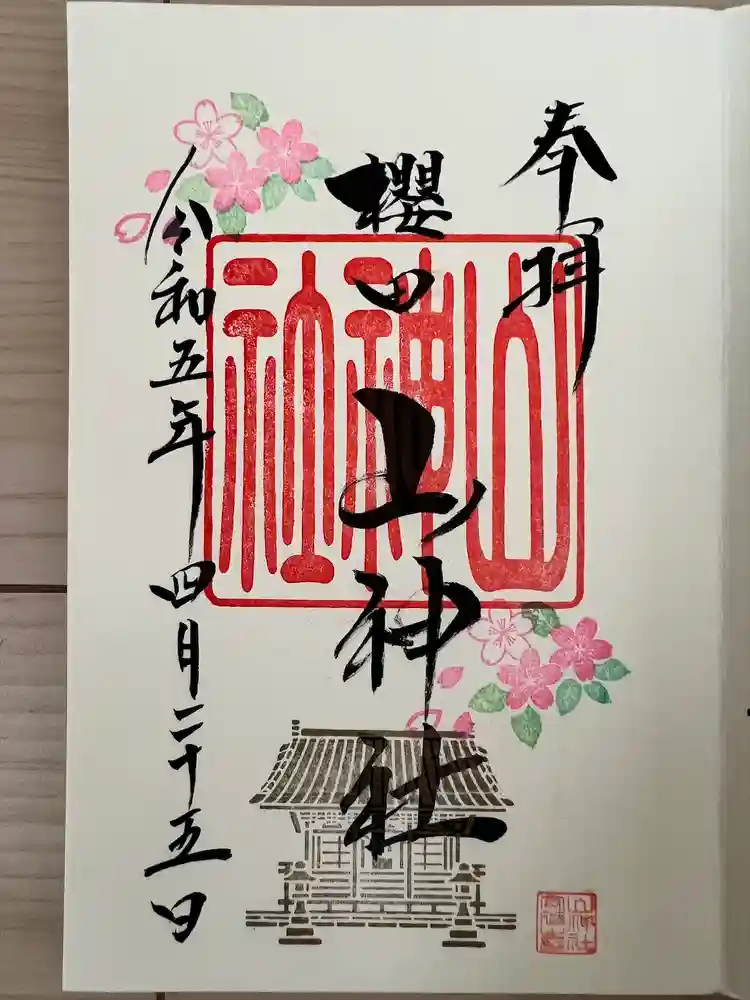 奉拝
櫻田山神社
令和五年四月二十五日
山神社